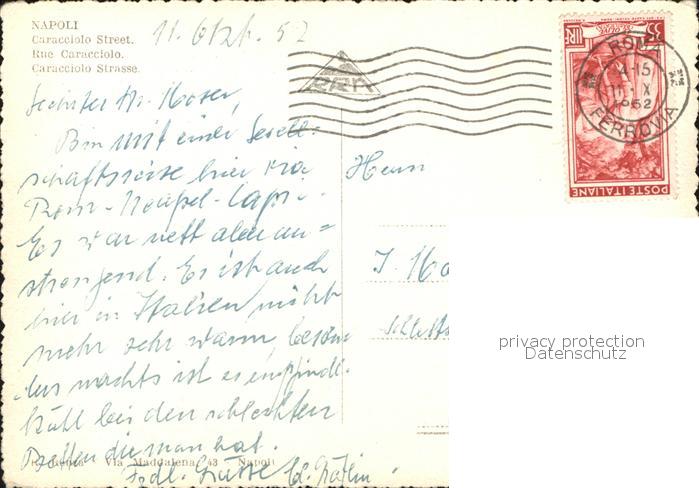 NAPOLI
Caracciolo Street.
Rue Caracciolo.
Caracciolo Strasse.
11. Okt. 52
Geehrter Hr. Moser,
Bin mit einer Gesell-
schaftsreise hier via
Rom - Neapel - Capri.
Es war nett aber an=
strengend. Es ist auch
hier in Italien nicht
mehr sehr warm, beson
ders nachts ist es empfindl.
kalt bei den schlechten
Betten die man hat.
Via Maddalena, 43 - Napoli
Frdl. Grüsse
Herrn
J. Mo
privacy protection
Datenschutz
35 LIRE
POSTE ITALIANE
ROMA
FERROVIA